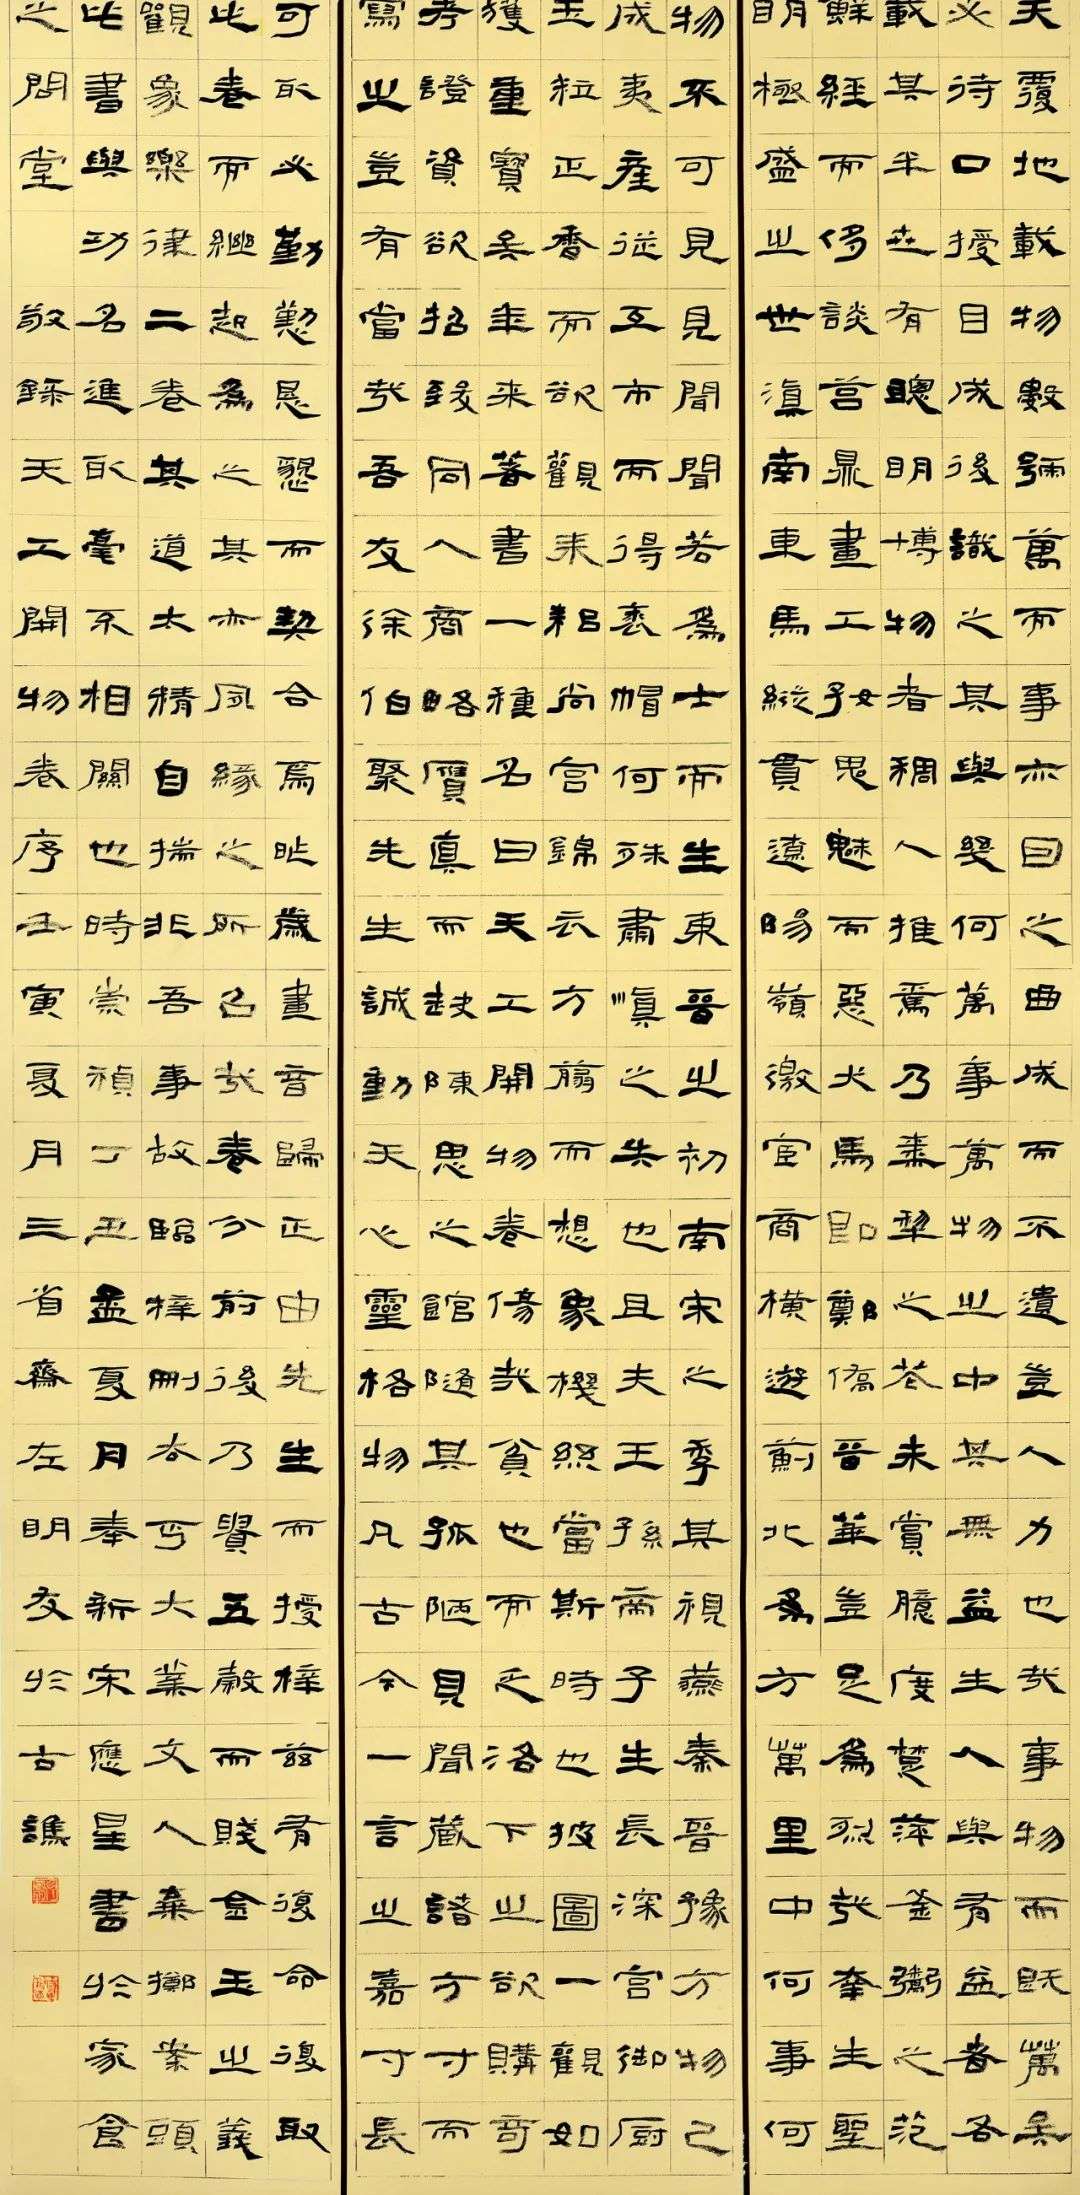 天覆地載物數號萬而事亦因之曲成而不遺豈人力也哉事物而既萬矣
必待口授目成後識之其與幾何萬事萬物之中其無益生人與有益者各
載其半世有聰明博物者稠人推焉乃棗梨之花未賞臆度楚萍釜鬵之范
鮮經而侈談莒鼎畫工好鬼魅而惡犬馬即鄭僑晉華豈足為烈哉幸生聖
明極盛之世滇南車馬縱貫遼陽嶺徼宦商橫遊薊北為方萬里中何事何
物不可見見聞聞若為士而生東晉之初南宋之季其視燕秦晉豫方物已
成夷產從互市而得裘帽何殊肅慎之矢也且夫王孫帝子生長深宮御廚
玉粒正香而欲觀耒耜尚宮錦衣方剪而想象機絲當斯時也披圖一觀如
獲重寶矣年来著書一種名曰天工開物卷傷哉貧也而乏洛下之欲購奇
考證資欲招致同人商略贗真而缺陳思之館隨其孤陋見聞藏諸方寸而
寫之豈有當哉吾友徐伯聚先生誠動天心靈格物凡古今一言之嘉寸長
可取必勤懃恳懇而契合焉昨歲畫音歸正由先生而授梓茲有復命復取
此卷而繼起為之其亦夙緣之所召哉卷分前後乃貴五穀而賤金玉之義
觀象樂律二卷其道太精自揣非吾事故臨梓刪去丐大業文人棄擲案頭
此書與功名進取毫不相關也時崇禎丁丑孟夏月奉新宋應星書於家食
之問堂 敬錄天工開物卷序壬寅夏月三省齋左明友於古譙